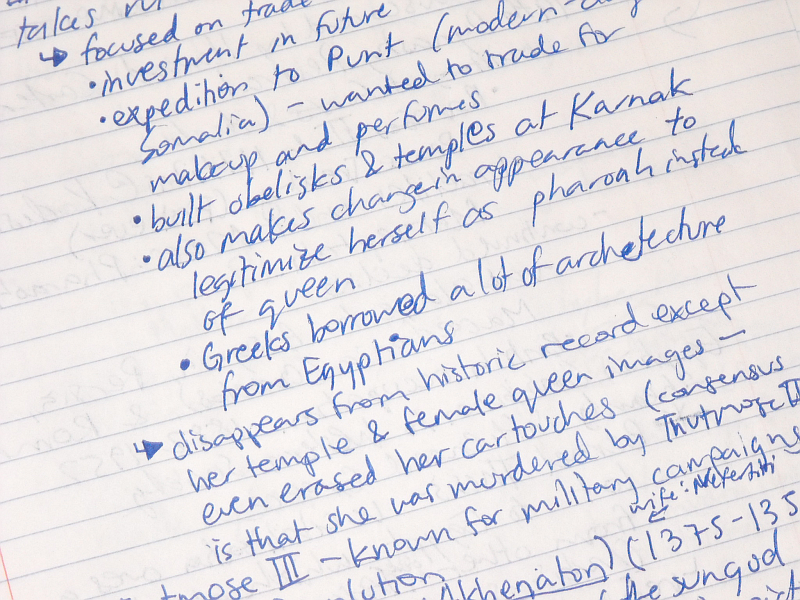 takes
↳ focused on trade
• investment in future
• expedition to Punt (modern-day
Somalia) - wanted to trade for
makeup and perfumes
• built obelisks & temples at Karnak
• also makes change in appearance to
legitimize herself as pharoah instead
of queen
• Greeks borrowed a lot of archetecture
from Egyptians
→ disappears from historic record except
her temple & female queen images -
even erased her cartouches (consensus
is that she was murdered by Thutmose II
wife: Nefertiti
tmose III - known for military campaigns
olution Akhenaton) (1375-135
the sungod